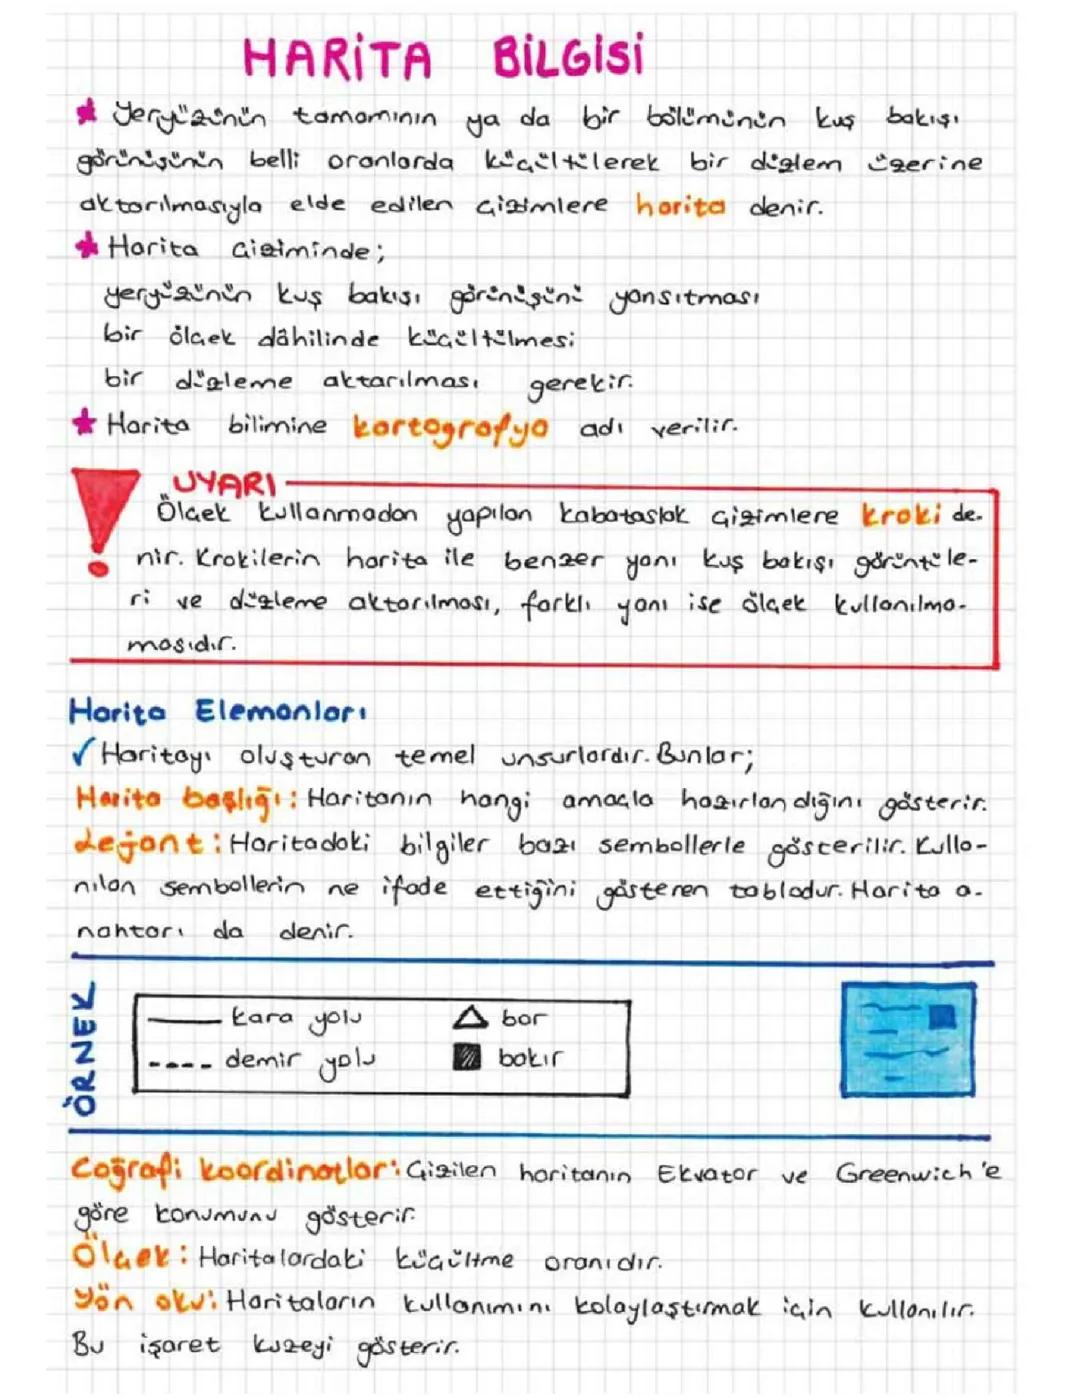 HARİTA BİLGİSİ
Yeryüzünün tamamının ya da bir bölümünün kuş bakışı
görünüşünün belli oranlarda küçültülerek bir düzlem üzerine
aktarılmasıyla elde edilen çizimlere harita denir.
Harita çiziminde;
yeryüzünün kuş bakışı görünüşünü yansıtması
bir ölçek dâhilinde küçültülmesi
bir düzleme aktarılması gerekir.
Harita bilimine kartografya adı verilir.
UYARI
Ölçek kullanmadan yapılan kabataslak çizimlere kroki de-
nir. Krokilerin harita ile benzer yanı kuş bakışı görüntüle-
ri ve düzleme aktarılması, farklı yanı ise ölçek kullanılma-
masıdır.
Harita Elemanları
✓ Haritayı oluşturan temel unsurlardır. Bunlar;
Harita başlığı: Haritanın hangi amaçla hazırlandığını gösterir.
Lejant: Haritadaki bilgiler bazı sembollerle gösterilir. Kulla-
nılan sembollerin ne ifade ettiğini gösteren tablodur. Harita a-
nahtarı da denir.
ÖRNEK
kara yolu bor
demir yolu bakır
Coğrafi koordinatlar: Çizilen haritanın Ekvator ve Greenwich'e
göre konumunu gösterir.
Ölçek: Haritalardaki küçültme oranıdır.
Yön oku: Haritaların kullanımını kolaylaştırmak için kullanılır.
Bu işaret kuzeyi gösterir.